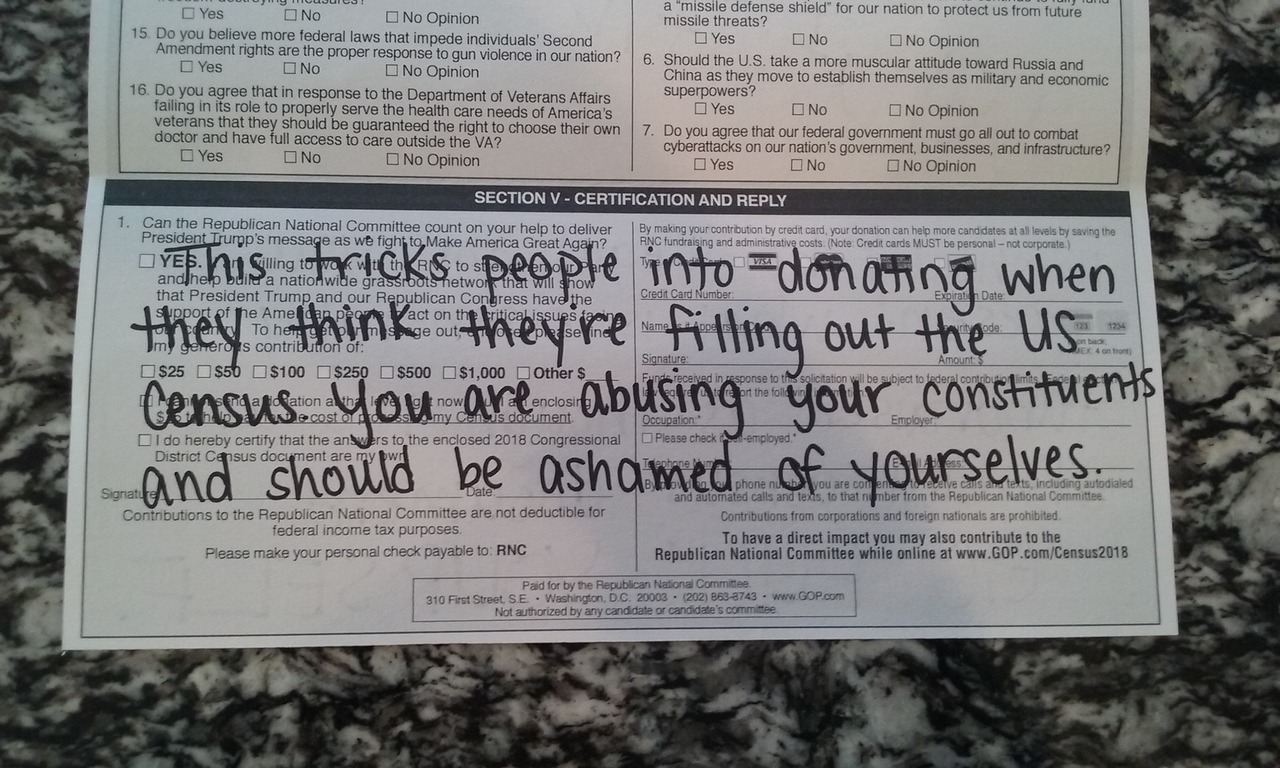 ☐ Yes ☐ No ☐ No Opinion
15. Do you believe more federal laws that impede individuals' Second
Amendment rights are the proper response to gun violence in our nation?
☐ Yes ☐ No ☐ No Opinion
16. Do you agree that in response to the Department of Veterans Affairs
failing in its role to properly serve the health care needs of America's
veterans that they should be guaranteed the right to choose their own
doctor and have full access to care outside the VA?
☐ Yes ☐ No ☐ No Opinion
a "missile defense shield" for our nation to protect us from future
missile threats?
☐ Yes ☐ No ☐ No Opinion
6. Should the U.S. take a more muscular attitude toward Russia and
China as they move to establish themselves as military and economic
superpowers?
☐ Yes ☐ No ☐ No Opinion
7. Do you agree that our federal government must go all out to combat
cyberattacks on our nation's government, businesses, and infrastructure?
☐ Yes ☐ No ☐ No Opinion
SECTION V - CERTIFICATION AND REPLY
This tricks people into donating when
they think they're filling out the US
Census. You are abusing your constituents
and should be ashamed of yourselves.
1. Can the Republican National Committee count on your help to deliver
President Trump's message as we fight to Make America Great Again?
☐ YES.
and help build a nationwide grassroots network that will show
that President Trump and our Republican Congress have the
my generous contribution of:
☐ $25 ☐ $50 ☐ $100 ☐ $250 ☐ $500 ☐ $1,000 ☐ Other $
cost of processing my Census document.
☐ I do hereby certify that the answers to the enclosed 2018 Congressional
District Census document are my own.
Signature Date:
Contributions to the Republican National Committee are not deductible for
federal income tax purposes.
Please make your personal check payable to: RNC
By making your contribution by credit card, your donation can help more candidates at all levels by saving the
RNC fundraising and administrative costs. (Note: Credit cards MUST be personal – not corporate.)
VISA
Credit Card Number: Expiration Date:
123 1234
Signature: Amount: $
Funds received in response to this solicitation will be subject to federal contribution limits.
Occupation:* Employer:*
☐ Please check if self-employed.*
phone number, you are to receive calls and texts, including autodialed
and automated calls and texts, to that number from the Republican National Committee.
Contributions from corporations and foreign nationals are prohibited.
To have a direct impact you may also contribute to the
Republican National Committee while online at www.GOP.com/Census2018
Paid for by the Republican National Committee.
310 First Street, S.E. • Washington, D.C. 20003 • (202) 863-8743 • www.GOP.com
Not authorized by any candidate or candidate's committee.